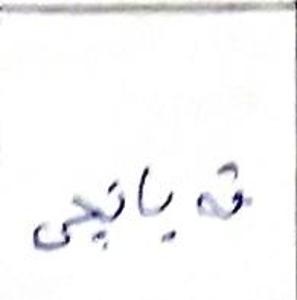 قەیانچی